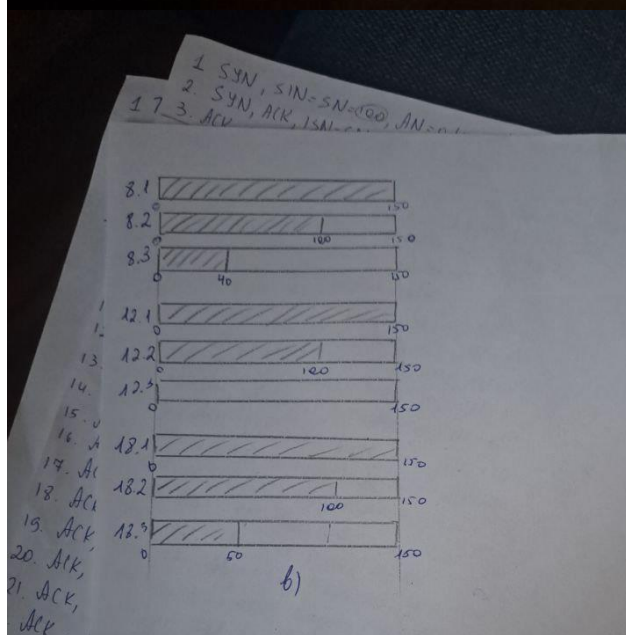 1 SYN, SIN=SN=100, AN=
2. SYN, ACK, ISN=
1 7 3. ACK
8.1
0 150
8.2
0 100 150
8.3
0 40 150
12.1
0 150
12.2
0 100 150
12.3
0 150
18.1
0 150
18.2
100 150
18.3
0 50 150
в)
13.
14.
15.
16. A
17. AC
18. ACK
19. ACK,
20. ACK,
21. ACK,
ACK